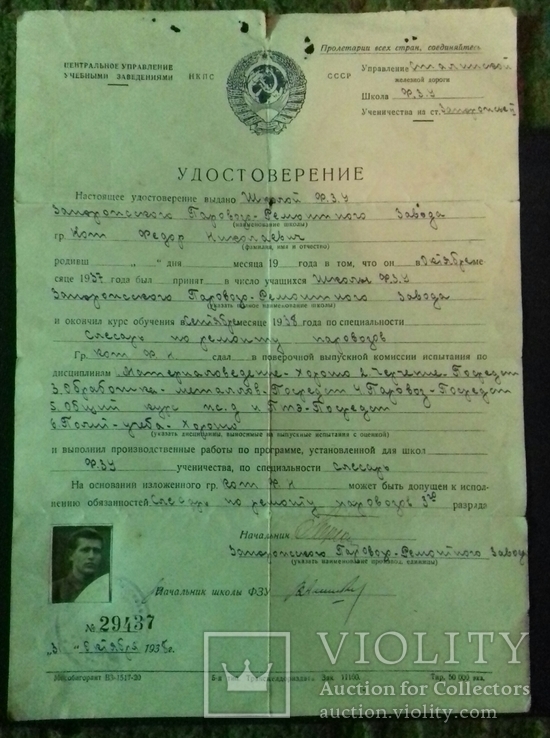 Пролетарии всех стран, соединяйтесь
ЦЕНТРАЛЬНОЕ УПРАВЛЕНИЕ
УЧЕБНЫМИ ЗАВЕДЕНИЯМИ НКПС СССР
Управление Сталинской
железной дороги
Школа Ф.З.У
Ученичества на ст. Запорожье II
УДОСТОВЕРЕНИЕ
Настоящее удостоверение выдано Школой Ф.З.У
Запорожского Паровозо-Ремонтного Завода
(наименование школы)
гр. Кот Федор Николаевич
(фамилия, имя и отчество)
родивш „ “ дня месяца 19 года в том, что он в Октябре ме-
сяце 1937 года был принят в число учащихся Школы Ф.З.У
Запорожского Паровозо-Ремонтного Завода
(указать полное наименование школы)
и окончил курс обучения в Октябре месяце 1938 года по специальности
Слесарь по ремонту паровозов
Гр. Кот Ф. Н. сдал в поверочной выпускной комиссии испытания по
дисциплинам Материаловедение-Хорошо 2. Черчение-Посредст
3. Обработка-металлов-Посредст 4. Паровоз-Посредст
5. Общий курс ж.д и ПТЭ-Посредст
6. Полит-учеба-Хорошо
(указать дисциплины, выносимые на выпускные испытания с оценкой)
и выполнил производственные работы по программе, установленной для школ
ФЗУ ученичества, по специальности Слесарь
На основании изложенного гр. Кот Ф. Н может быть допущен к испол-
нению обязанностей Слесарь по ремонту паровозов разряда
Начальник
Запорожского Паровозо-Ремонтного Завода
(указать наименование производ. единицы)
Начальник школы ФЗУ
№ 29437
Октября 1938г.
Мособлгорлит В3-1517-20 Зак. 11100. Тир. 50 000 экз.
VIOLITY
Auction for Collectors
auction.violity.com